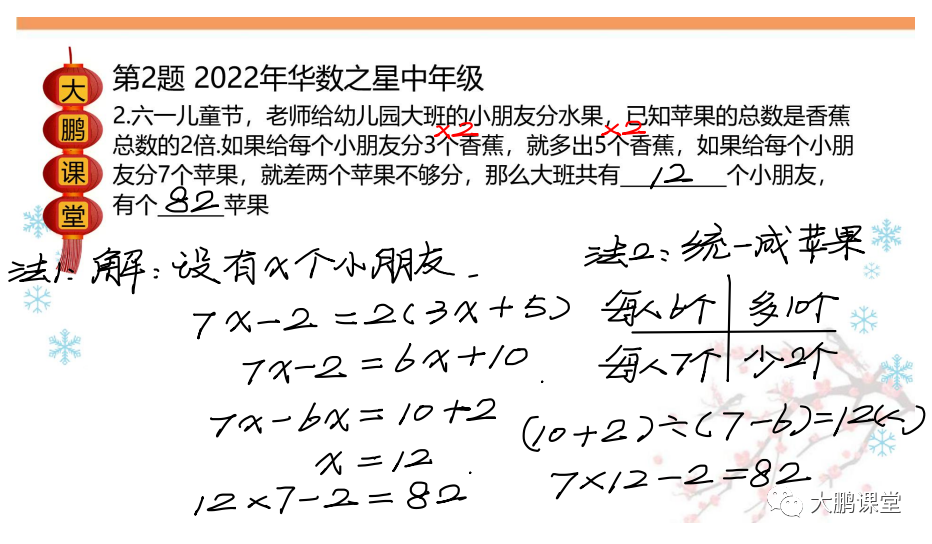 大鹏课堂
第2题 2022年华数之星中年级
2.六一儿童节，老师给幼儿园大班的小朋友分水果，已知苹果的总数是香蕉
×2 ×2
总数的2倍.如果给每个小朋友分3个香蕉，就多出5个香蕉，如果给每个小朋
友分7个苹果，就差两个苹果不够分，那么大班共有 12 个小朋友，
有个 82 苹果
法1: 解：设有x个小朋友.
7x-2=2(3x+5)
7x-2=6x+10.
7x-6x=10+2
x=12.
12×7-2=82
法2: 统一成苹果
每人6个 多10个
每人7个 少2个
(10+2)÷(7-6)=12(人)
7×12-2=82
大鹏课堂